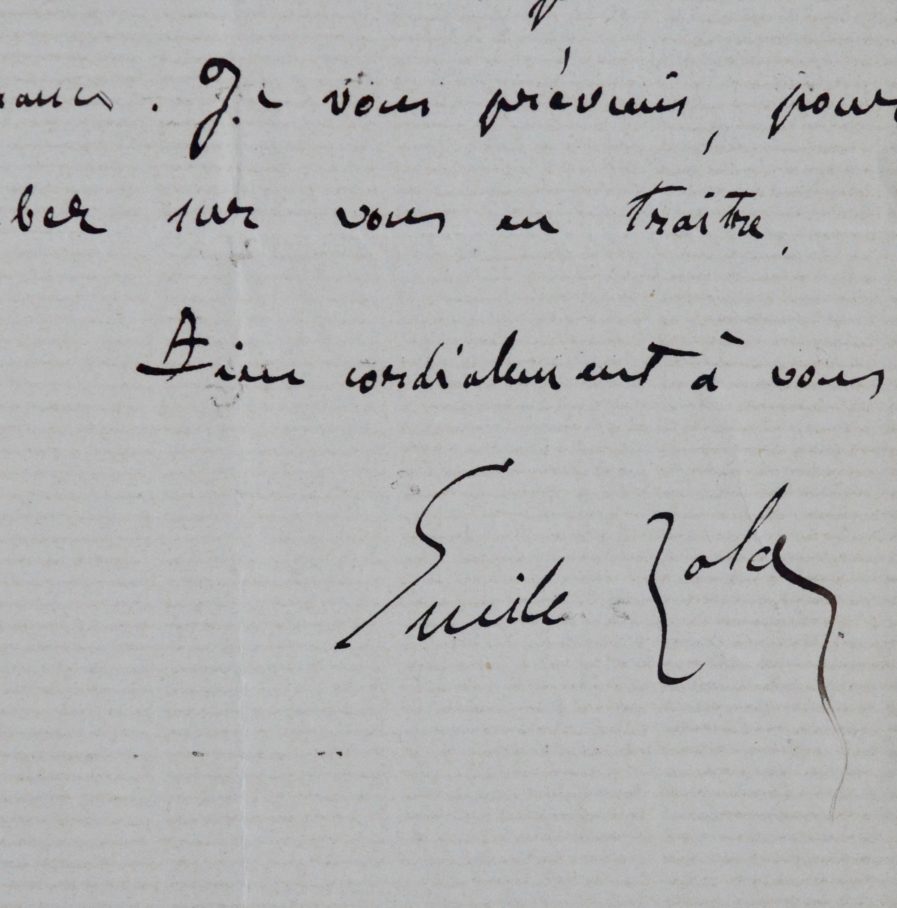 . Je vous préviens, pour
ber sur vous en traître.
Bien cordialement à vous
Emile Zola